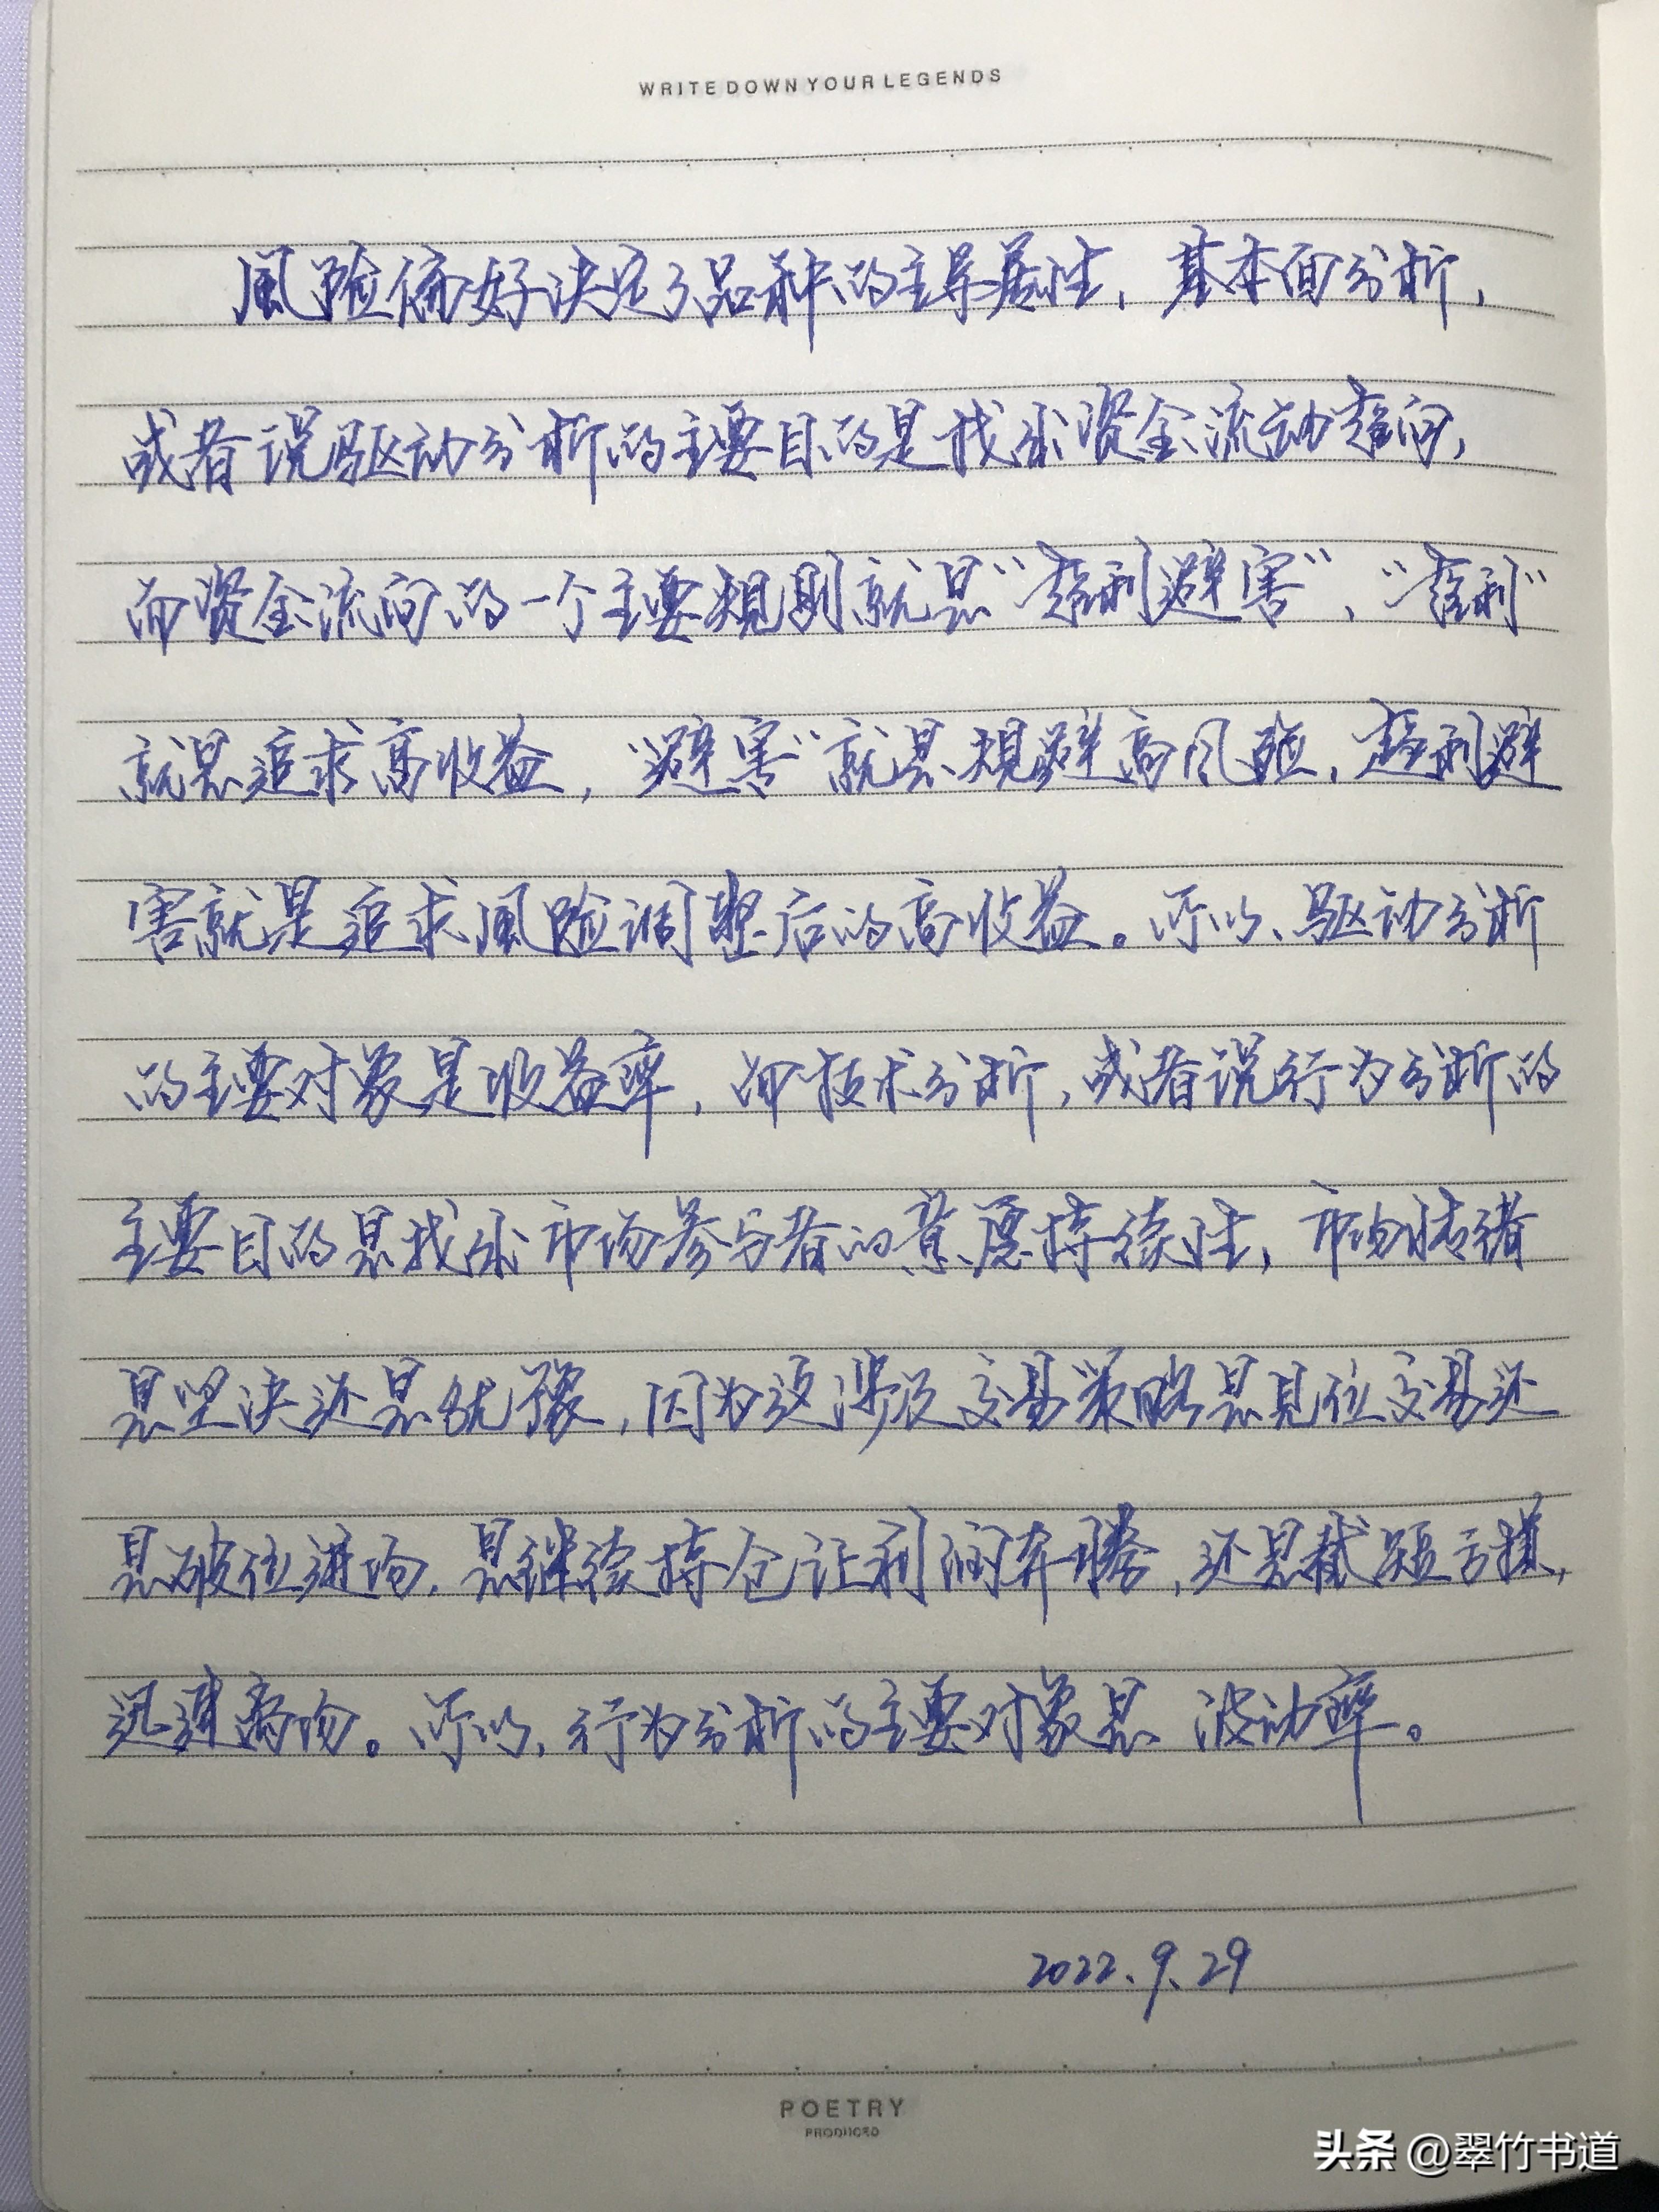 WRITE DOWN YOUR LEGENDS
風险偏好决定了品种的主导属性，基本面分析，
或者说驱动分析的主要目的是找出资金流动趋向，
而资金流向的一个主要规则就是“趋利避害”，“趋利”
就是追求高收益，“避害”就是规避高风险，趋利避
害就是追求風险调整后的高收益。所以、驱动分析
的主要对象是收益率，而技术分析，或者说行为分析的
主要目的是找出市场参与者的意愿持续性，市场情绪
是坚决还是犹豫，因为这涉及交易策略是见位交易还
是破位进场，是继续持仓让利润奔腾，还是截短亏损，
迅速离场。所以，行为分析的主要对象是 波动率。
2022.9.29
POETRY
PRODUCED
头条 @翠竹书道